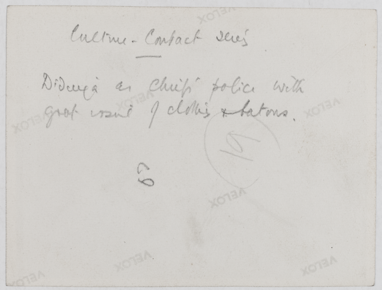 Culture-Contact series
Didinga as Chiefs' police with
govt issue of clothes & batons.
19
69
VELOX
VELOX
VELOX
VELOX
VELOX
VELOX
VELOX